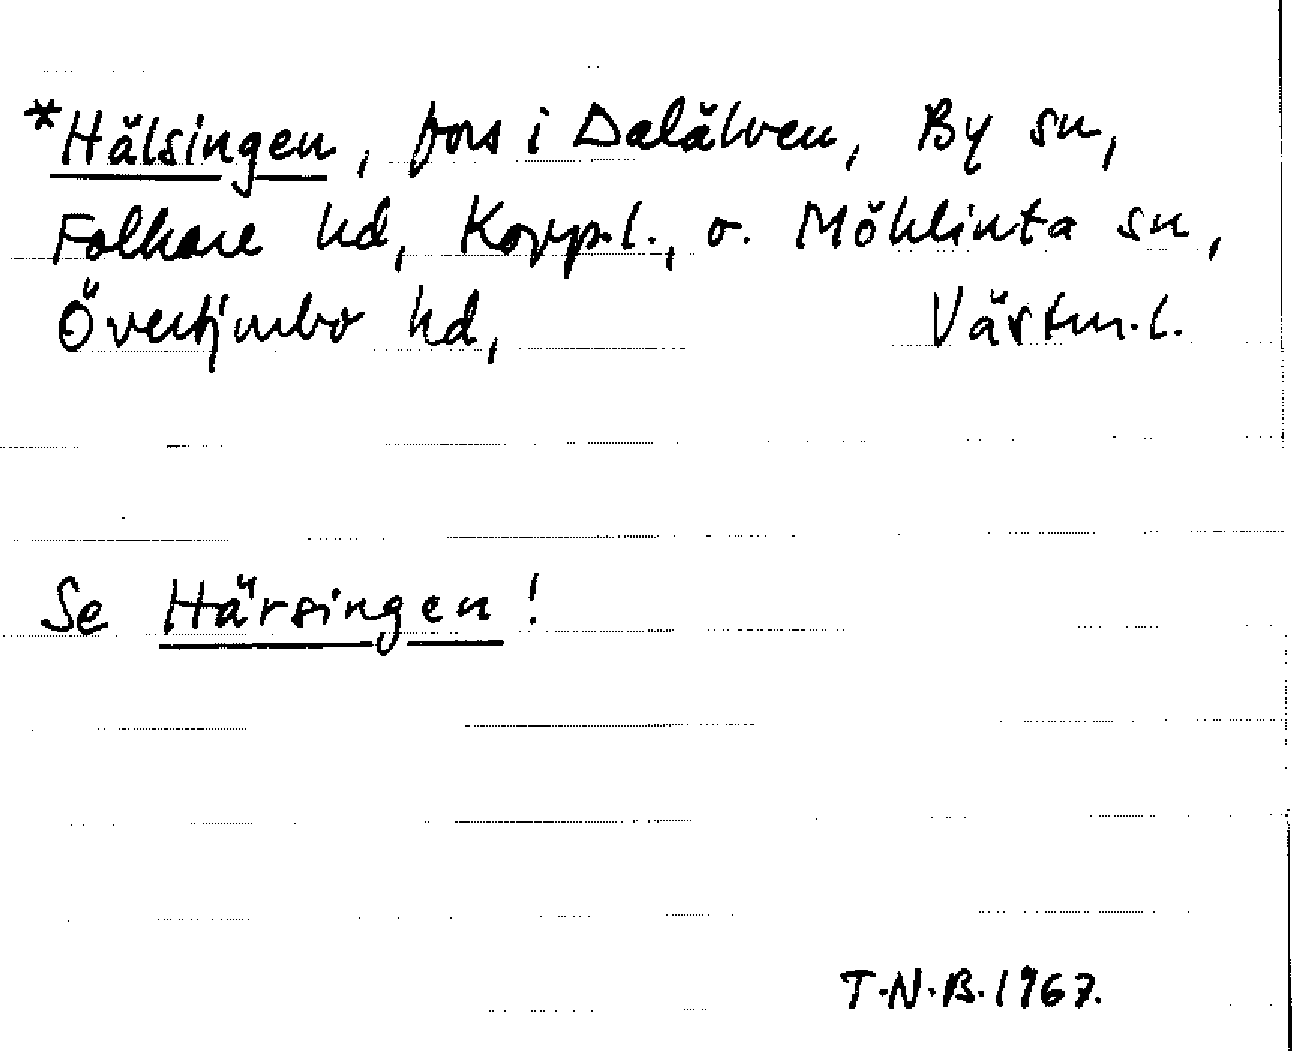 *Hälsingen, fors i Dalälven, By sn,
Folkare hd, Kopp.l., o. Möklinta sn,
Övertjurbo hd, Västm.l.
Se Härsingen!
T.N.B.1967.